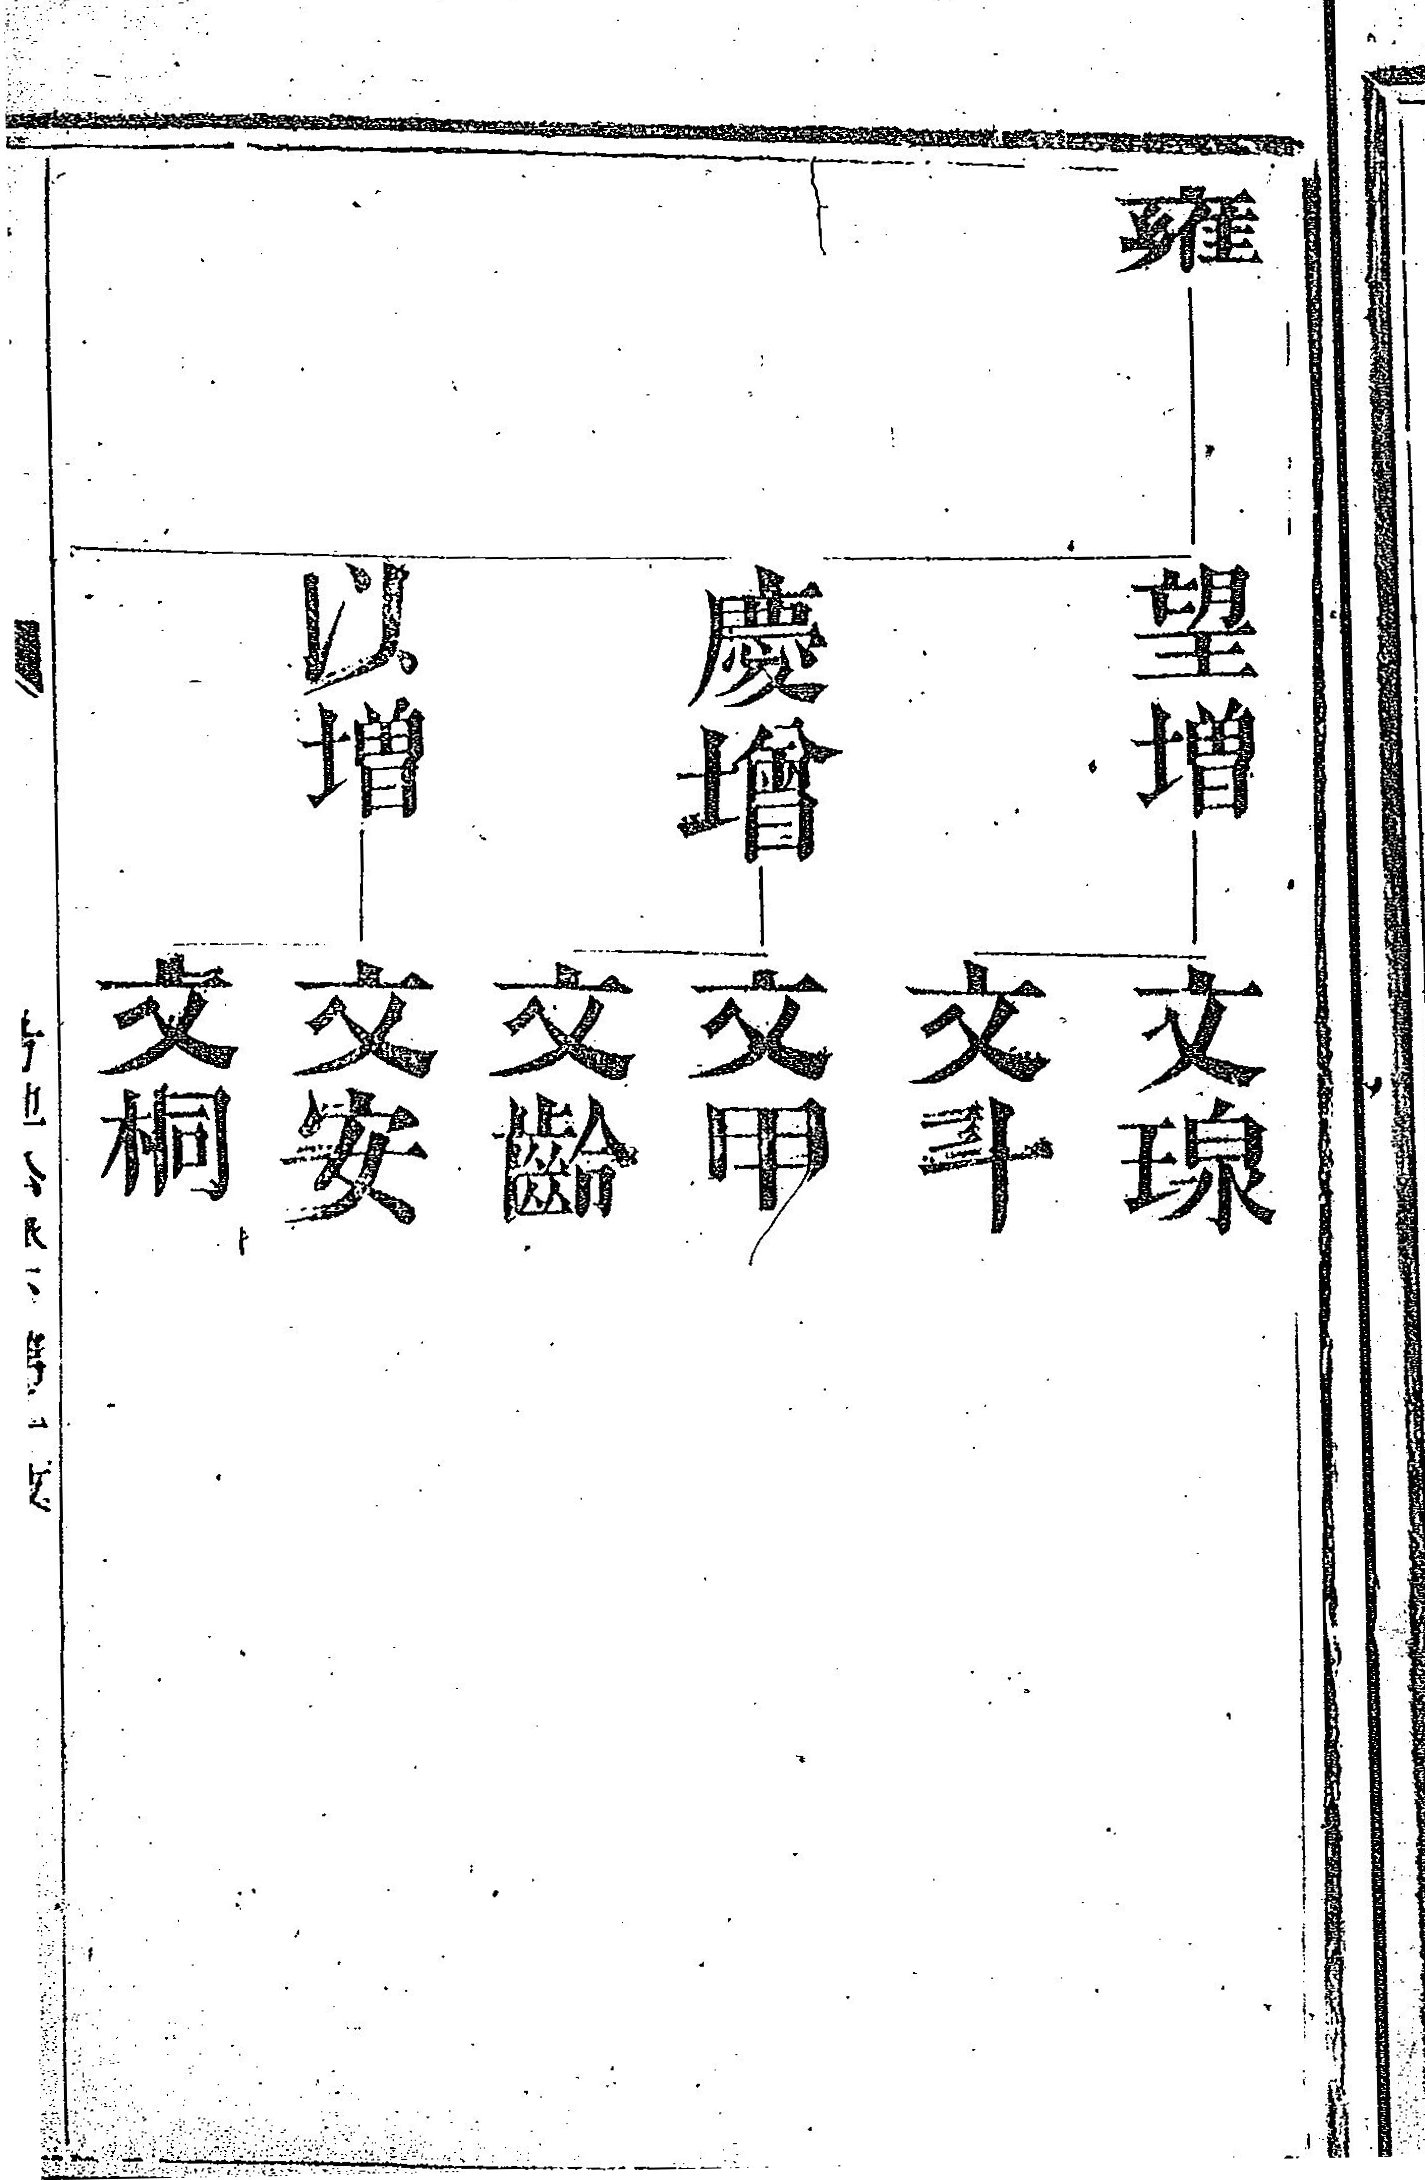 雍
望增
慶增
以增
文瑔
文斗
文甲
文齡
文安
文桐